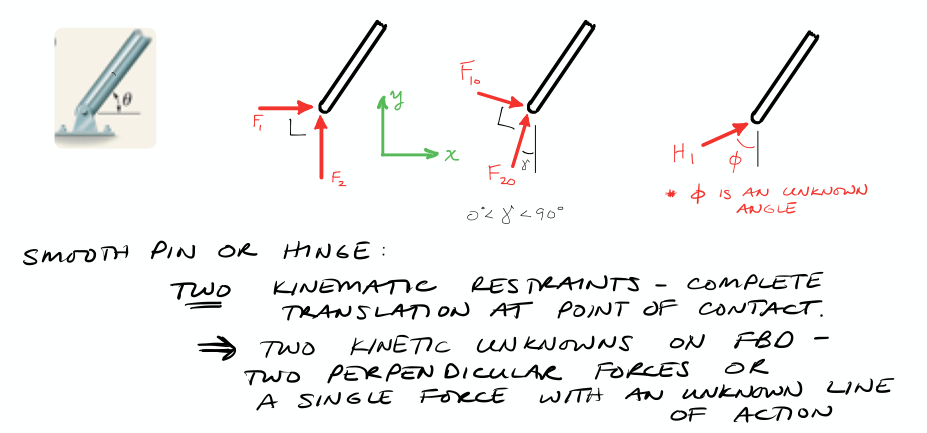 θ
F₁
F₂
y
x
F₁₀
F₂₀
γ
0° < γ < 90°
H₁
φ
* φ IS AN UNKNOWN
ANGLE
SMOOTH PIN OR HINGE:
TWO KINEMATIC RESTRAINTS - COMPLETE
TRANSLATION AT POINT OF CONTACT.
⇒ TWO KINETIC UNKNOWNS ON FBD -
TWO PERPENDICULAR FORCES OR
A SINGLE FORCE WITH AN UNKNOWN LINE
OF ACTION